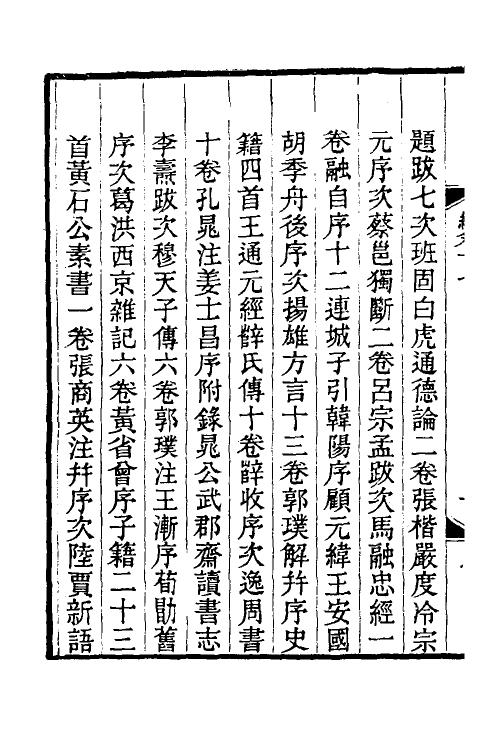 題跋七次班固白虎通德論二卷張楷嚴度冷宗
元序次蔡邕獨斷二卷呂宗孟跋次馬融忠經一
卷融自序十二連城子引韓陽序顧元緯王安國
胡季舟後序次揚雄方言十三卷郭璞解幷序史
籍四首王通元經辥氏傳十卷辥收序次逸周書
十卷孔晁注姜士昌序附錄晁公武郡齋讀書志
李燾跋次穆天子傳六卷郭璞注王漸序荀勖舊
序次葛洪西京雜記六卷黃省曾序子籍二十三
首黃石公素書一卷張商英注幷序次陸賈新語